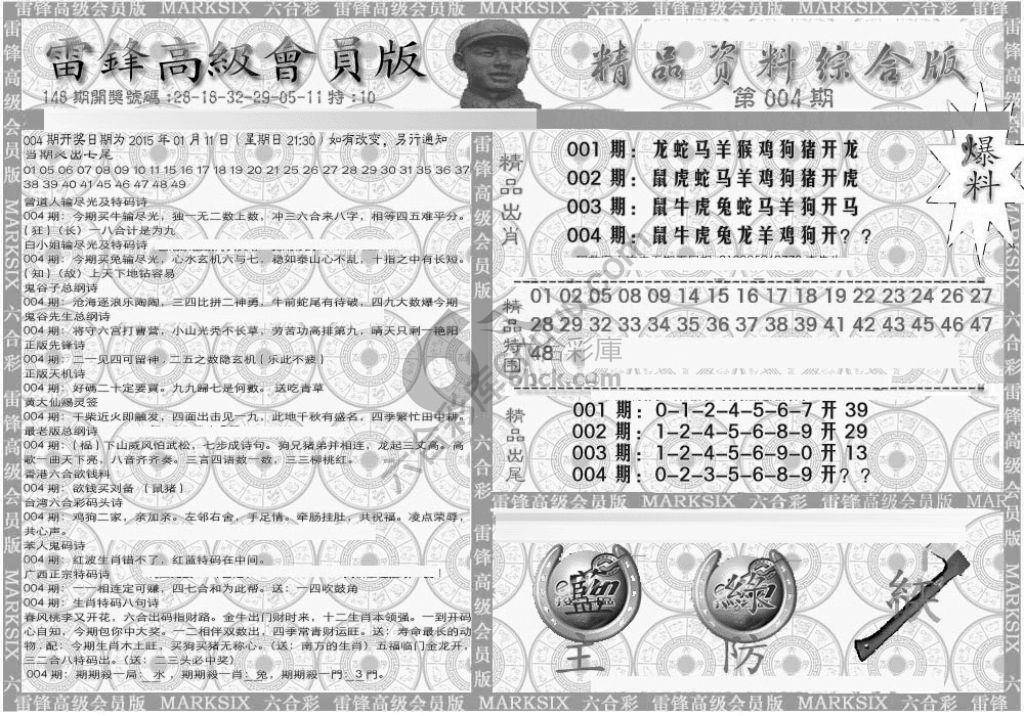 雷锋高级会员版 MARKSIX 六合彩 雷锋高级会员版 MARKSIX 六合彩 雷锋高级会员版 MARKSIX 六合彩
雷鋒高級會員版
148期開獎號碼:28-18-32-29-05-11特:10
精品资料综合版
第004期
爆料
004期开奖日期为2015年01月11日（星期日21:30）如有改变，另行通知
01 05 06 07 08 09 10 11 15 16 17 18 19 20 21 25 26 27 28 29 30 31 35 36 37
38 39 40 41 45 46 47 48 49
曾道人输尽光及特码诗
004期：今期买牛输尽光，独一无二数上数，冲三六合来八字，相等四五难平分。
{狂}（长）一八合计是为九
白小姐输尽光及特码诗
004期：今期买兔输尽光，心水玄机六与七，稳如泰山心不乱，十指之中有长短。
{知}（故）上天下地钻容易
鬼谷子总纲诗
004期：沧海逐浪乐陶陶，三四比拼二神勇，牛前蛇尾有待破，四九大数爆今期
鬼谷先生总纲诗
004期：将守六宫打曹营，小山光秃不长草，劳苦功高排第九，晴天只剩一艳阳
正版先锋诗
004期：二一见四可留神，二五之数隐玄机{乐此不疲}
正版天机诗
004期：好碼二十定要買。九九歸七是何數。送吃青草
黄大仙赐灵签
004期：干柴近火即触发，四面出击见一九，此地千秋有盛名，四季繁忙田中耕。
最老版总纲诗
004期：{福}下山威风怕武松，七步成诗句。狗兄猪弟并相连，龙起三丈高。高
歌一曲天下亮，八音齐齐奏。三言四语数一数，三三柳桃红。
香港六合欲钱料
004期：欲钱买刘备 {鼠猪}
台湾六合彩码头诗
004期：鸡狗二家，亲加亲。左邻右舍，手足情。牵肠挂肚，共祝福。凌点荣辱，
共心声。
苯人鬼码诗
004期：红波生肖错不了，红蓝特码在中间。
广西正宗特码诗
004期：一一相连定可赚，四七合和为此帮。送：一四吹鼓角
004期：生肖特码八句诗
春风桃李又开花，六合出码指财路。金牛出门财时来，十二生肖本领强。一到开码
心自知，今期包你中大奖。一二相伴双数出，四季常青财运旺。送：寿命最长的动
物.配：今期生肖木土旺，买狗买猪无称心。（送：南方的生肖）五福临门金龙开，
三二合八特码出。（送：二三头必中奖）
004期：期期殺一局：水，期期殺一肖：兔，期期殺一門：3門。
精品出肖
001期：龙蛇马羊猴鸡狗猪开龙
002期：鼠虎蛇马羊鸡狗猪开虎
003期：鼠牛虎兔蛇马羊狗开马
004期：鼠牛虎兔龙羊鸡狗开??
精品特围
01 02 05 08 09 14 15 16 17 18 19 21 22 23 24 26 27
28 29 32 33 34 35 36 37 38 39 41 42 43 45 46 47
48
彩庫
6hck.com
精品出尾
001期：0-1-2-4-5-6-7开39
002期：1-2-4-5-6-8-9开29
003期：1-2-4-5-6-9-0开13
004期：0-2-3-5-6-8-9开??
雷锋高级会员版 MARKSIX 六合彩 雷锋高级会员版
藍 綠 红
主 防
雷锋高级会员版 MARKSIX 六合彩 雷锋高级会员版 MARKSIX 六合彩 雷锋高级会员版 MARKSIX 六合彩